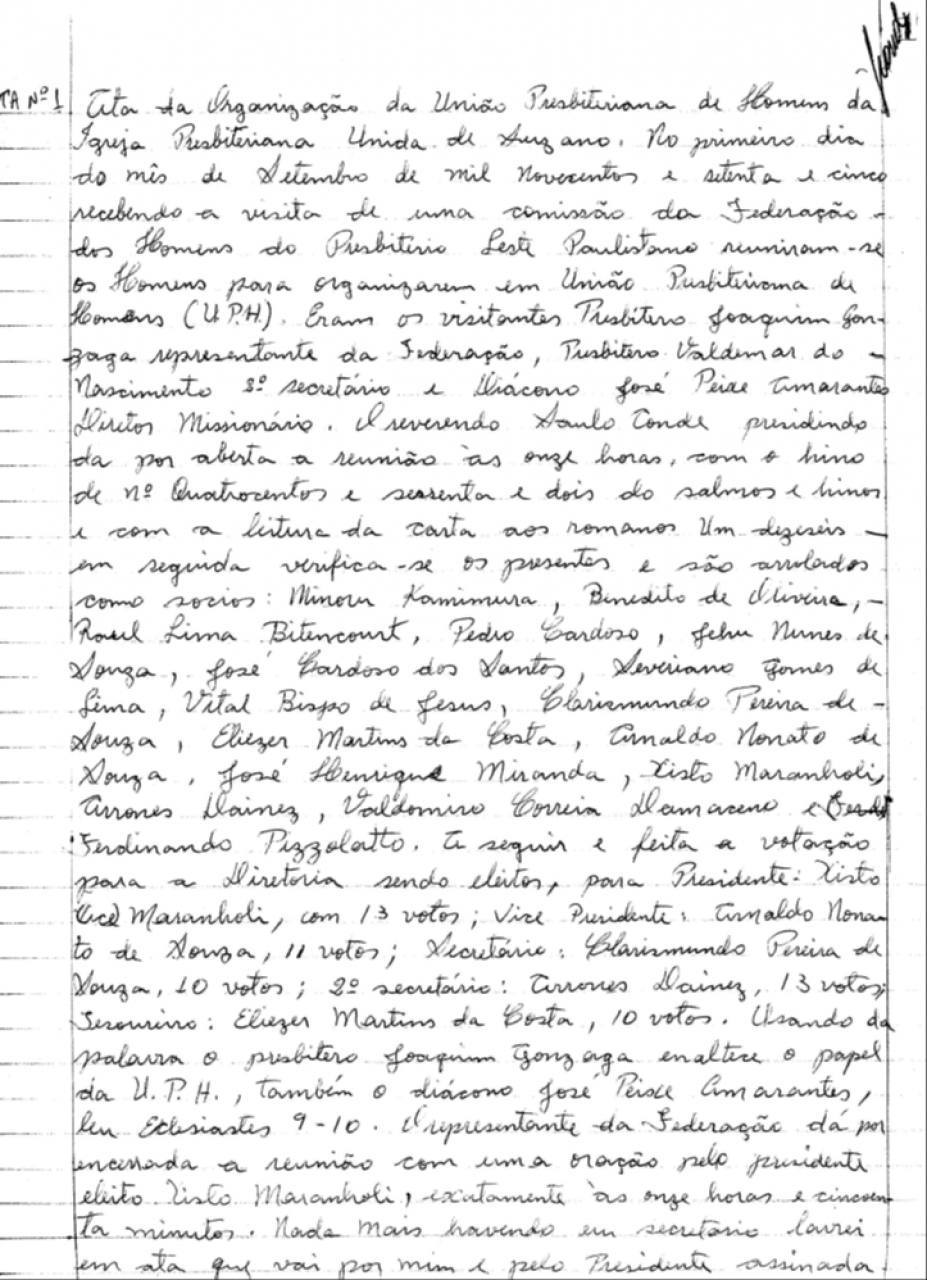 TA Nº 1
Ata da Organização da União Presbiteriana de Homens da
Igreja Presbiteriana Unida de Suzano. No primeiro dia
do mês de Setembro de mil Novecentos e setenta e cinco
recebendo a visita de uma comissão da Federação -
dos Homens do Presbiterio Leste Paulistano reuniram-se
os Homens para organizarem em União Presbiteriana de
Homens (U.P.H.). Eram os visitantes Presbitero Joaquim Gon-
zaga representante da Federação, Presbitero Valdemar do -
Nascimento 3º secretário e Diácono José Peixe Amarantes
Diretos Missionário. O reverendo Saulo Conde presidindo
da por aberta a reunião às onze horas, com o hino
de nº Quatrocentos e sessenta e dois do salmos e hinos
e com a leitura da carta aos romanos Um dezeseis -
em seguida verifica-se os presentes e são arrolados
como socios: Minoru Kamimura, Benedito de Oliveira, -
Raul Lima Bitencourt, Pedro Cardoso, Jehu Nunes de
Souza, José Cardoso dos Santos, Severiano Gomes de
Lima, Vital Bispo de Jesus, Clarismundo Pereira de -
Souza, Eliezer Martins da Costa, Arnaldo Nonato de
Souza, José Henrique Miranda, Xisto Maranholi,
Arrones Dainez, Valdomiro Correia Damaceno e
Ferdinando Pizzolatto. A seguir e feita a votação
para a Diretoria sendo eleitos, para Presidente: Xisto
Maranholi, com 13 votos; Vice Presidente: Arnaldo Nona-
to de Souza, 11 votos; Secretário: Clarismundo Pereira de
Souza, 10 votos; 2º secretário: Arrones Dainez, 13 votos;
Tesoureiro: Eliezer Martins da Costa, 10 votos. Usando da
palavra o presbitero Joaquim Gonzaga enaltece o papel
da U.P.H., também o diácono José Peixe Amarantes,
leu Eclesiastes 9-10. O representante da Federação dá por
encerrada a reunião com uma oração pelo presidente
eleito Xisto Maranholi, exatamente às onze horas e cincoen-
ta minutos. Nada Mais havendo eu secretario lavrei
em ata que vai por mim e pelo Presidente assinada.